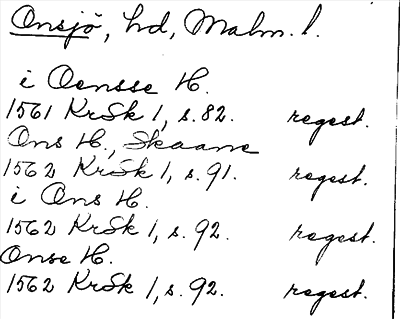 Onsjö, hd, Malm. l.
i Oensse H.
1561 KrSk 1, s. 82. regest.
Ons H., Skaane
1562 KrSk 1, s. 91. regest.
i Ons H.
1562 KrSk 1, s. 92. regest.
Onse H.
1562 KrSk 1, s. 92. regest.